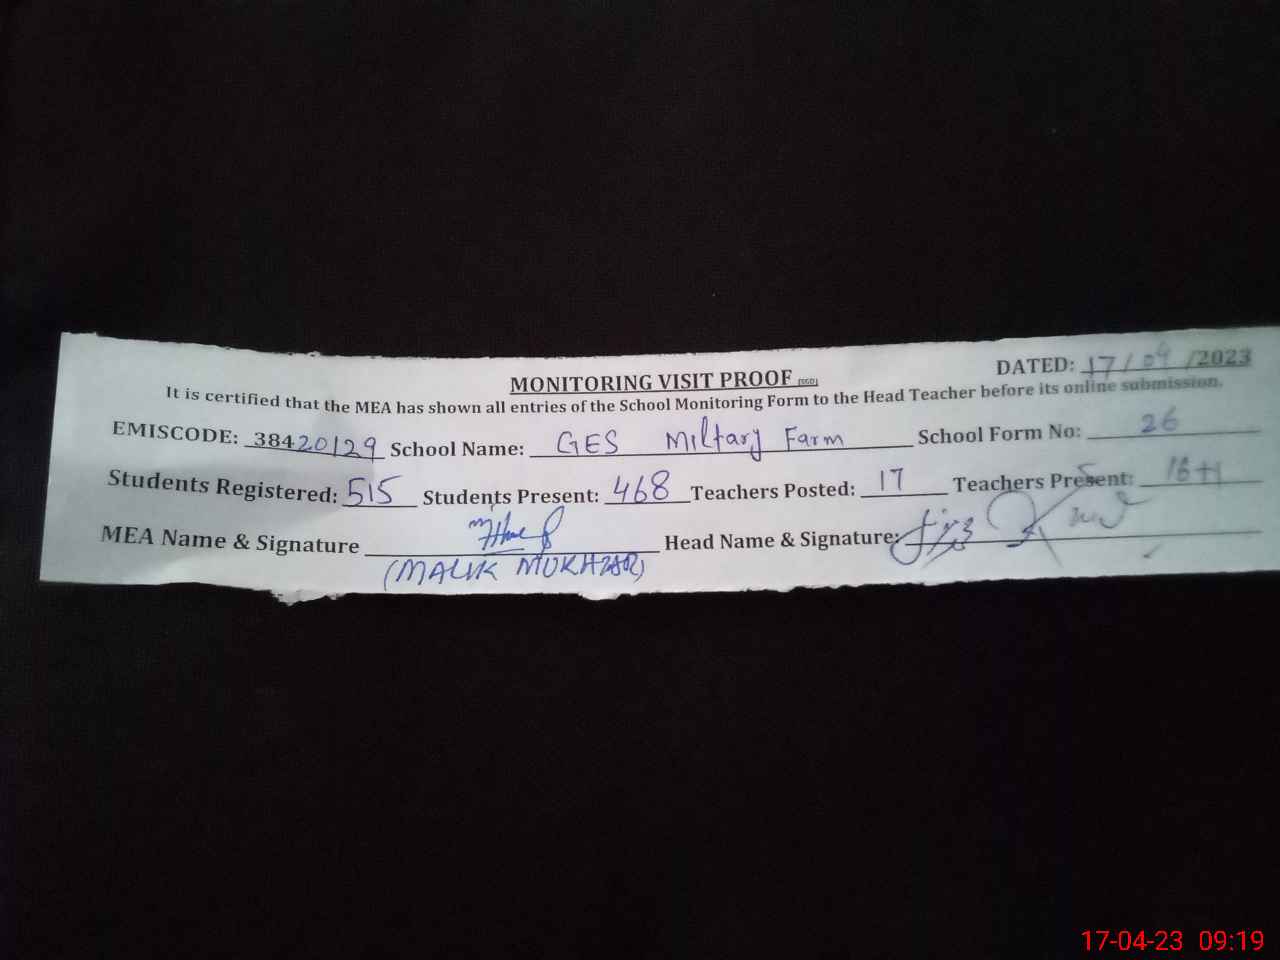 DATED: 17/04/2023
MONITORING VISIT PROOF (SGD)
It is certified that the MEA has shown all entries of the School Monitoring Form to the Head Teacher before its online submission.
EMISCODE: 38420129 School Name: GES Miltary Farm School Form No: 26
Students Registered: 515 Students Present: 468 Teachers Posted: 17 Teachers Present: 16+1
MEA Name & Signature Head Name & Signature:
(MALIK MUKHTAR)
17-04-23 09:19